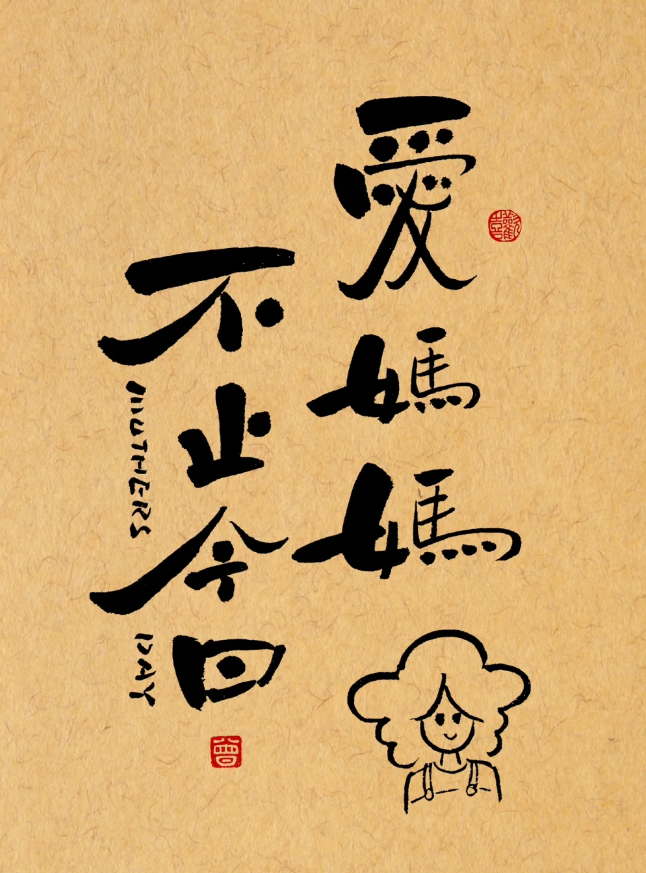 愛媽媽
不止今日
MOTHERS
DAY
曾